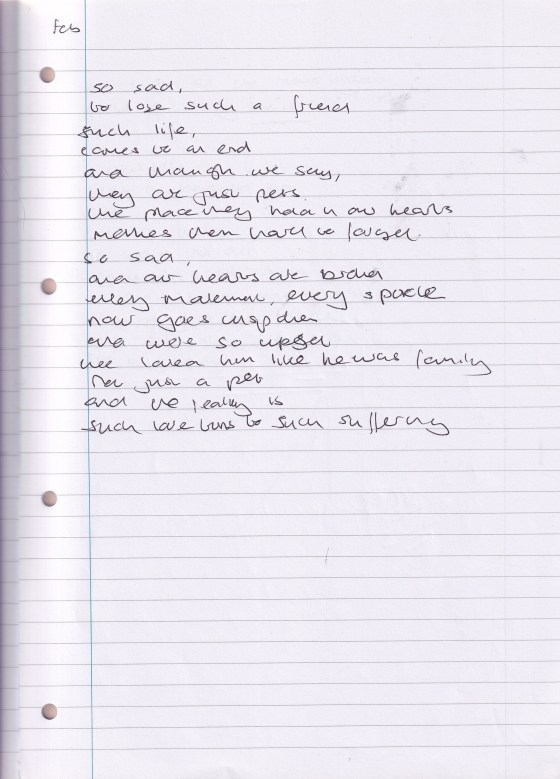 Feb
so sad,
to lose such a friend
such life,
comes to an end
and though we say,
they are just pets.
the place they hold in our hearts
makes them hard to forget.
so sad,
and our hearts are broken
every movement, every space
now goes unspoken
and we're so upset
we loved him like he was family
not just a pet
and the feeling is
such love turns to such suffering